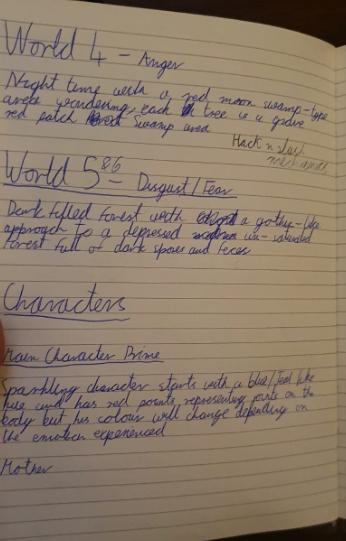 World 4 - Anger
Night time with a red moon swamp-type
area wandering, each tree is a grave
red patch swamp area
Hack n slash
mechanics
World 5&6 - Disgust/Fear
Dark filled forest with a gothic-like
approach to a depressed un-saturated
forest full of dark spores and feces
Characters
Main Character Prime
Sparkling character starts with a blue/teal like
hue and has red points, representing joints on the
body but his colour will change depending on
the emotion experienced
Mother